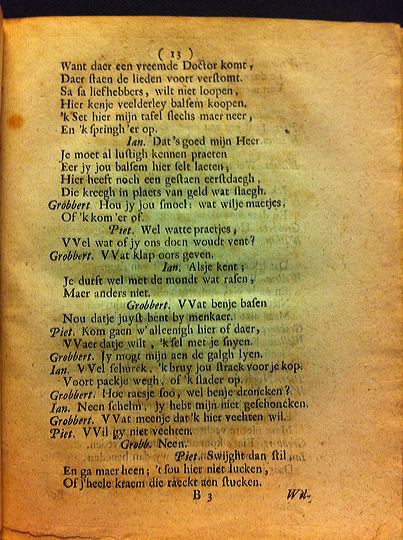 ( 13 )
Want daer een vreemde Doctor komt,
Daer staen de lieden voort verstomt.
Sa sa liefhebbers, wilt niet loopen,
Hier kenje veelderley balsem koopen.
'k Set hier mijn tafel slechs maer neer,
En 'k springh 'er op.
Ian. Dat's goed mijn Heer
Je moet al lustigh kennen praeten
Eer jy jou balsem hier selt laeten;
Hier heeft noch een gestaen eerstdaegh,
Die kreegh in plaets van geld wat slaegh.
Grobbert. Hou jy jou smoel: wat wilje maetjes,
Of 'k kom 'er of.
Piet. Wel watte praetjes,
VVel wat of jy ons doen woudt vent?
Grobbert. VVat klap oors geven.
Ian. Alsje kent;
Je durft wel met de mondt wat rasen,
Maer anders niet.
Grobbert. VVat benje basen
Nou datje juyst bent by menkaer.
Piet. Kom gaen w'alleenigh hier of daer,
VVaer datje wilt, 'k sel met je snyen.
Grobbert. Jy mogt mijn aen de galgh lyen.
Ian. VVel schurck, 'k bruy jou strack voor je kop.
Voort packje wegh, of 'k slader op.
Grobbert. Hoe raesje soo, wel benje droncken?
Ian. Neen schelm, jy hebt mijn niet geschoncken.
Grobbert. VVat meenje dat 'k hier vechten wil.
Piet. VVil gy niet vechten.
Grobb. Neen.
Piet. Swijght dan stil,
En ga maer heen; 't sou hier niet lucken,
Of j'heele kraem die raeckt aen stucken.
B 3